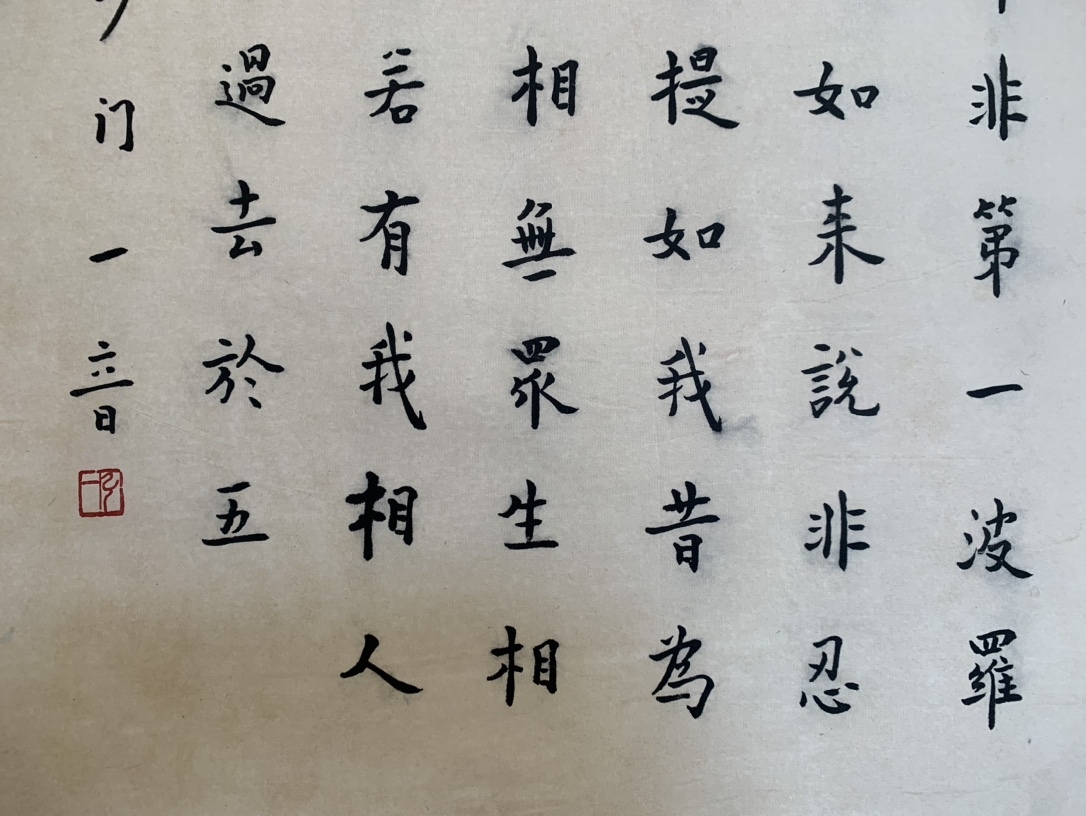 非第一波羅
如来說非忍
提如我昔為
相無眾生相
若有我相人
過去於五
沙门一音